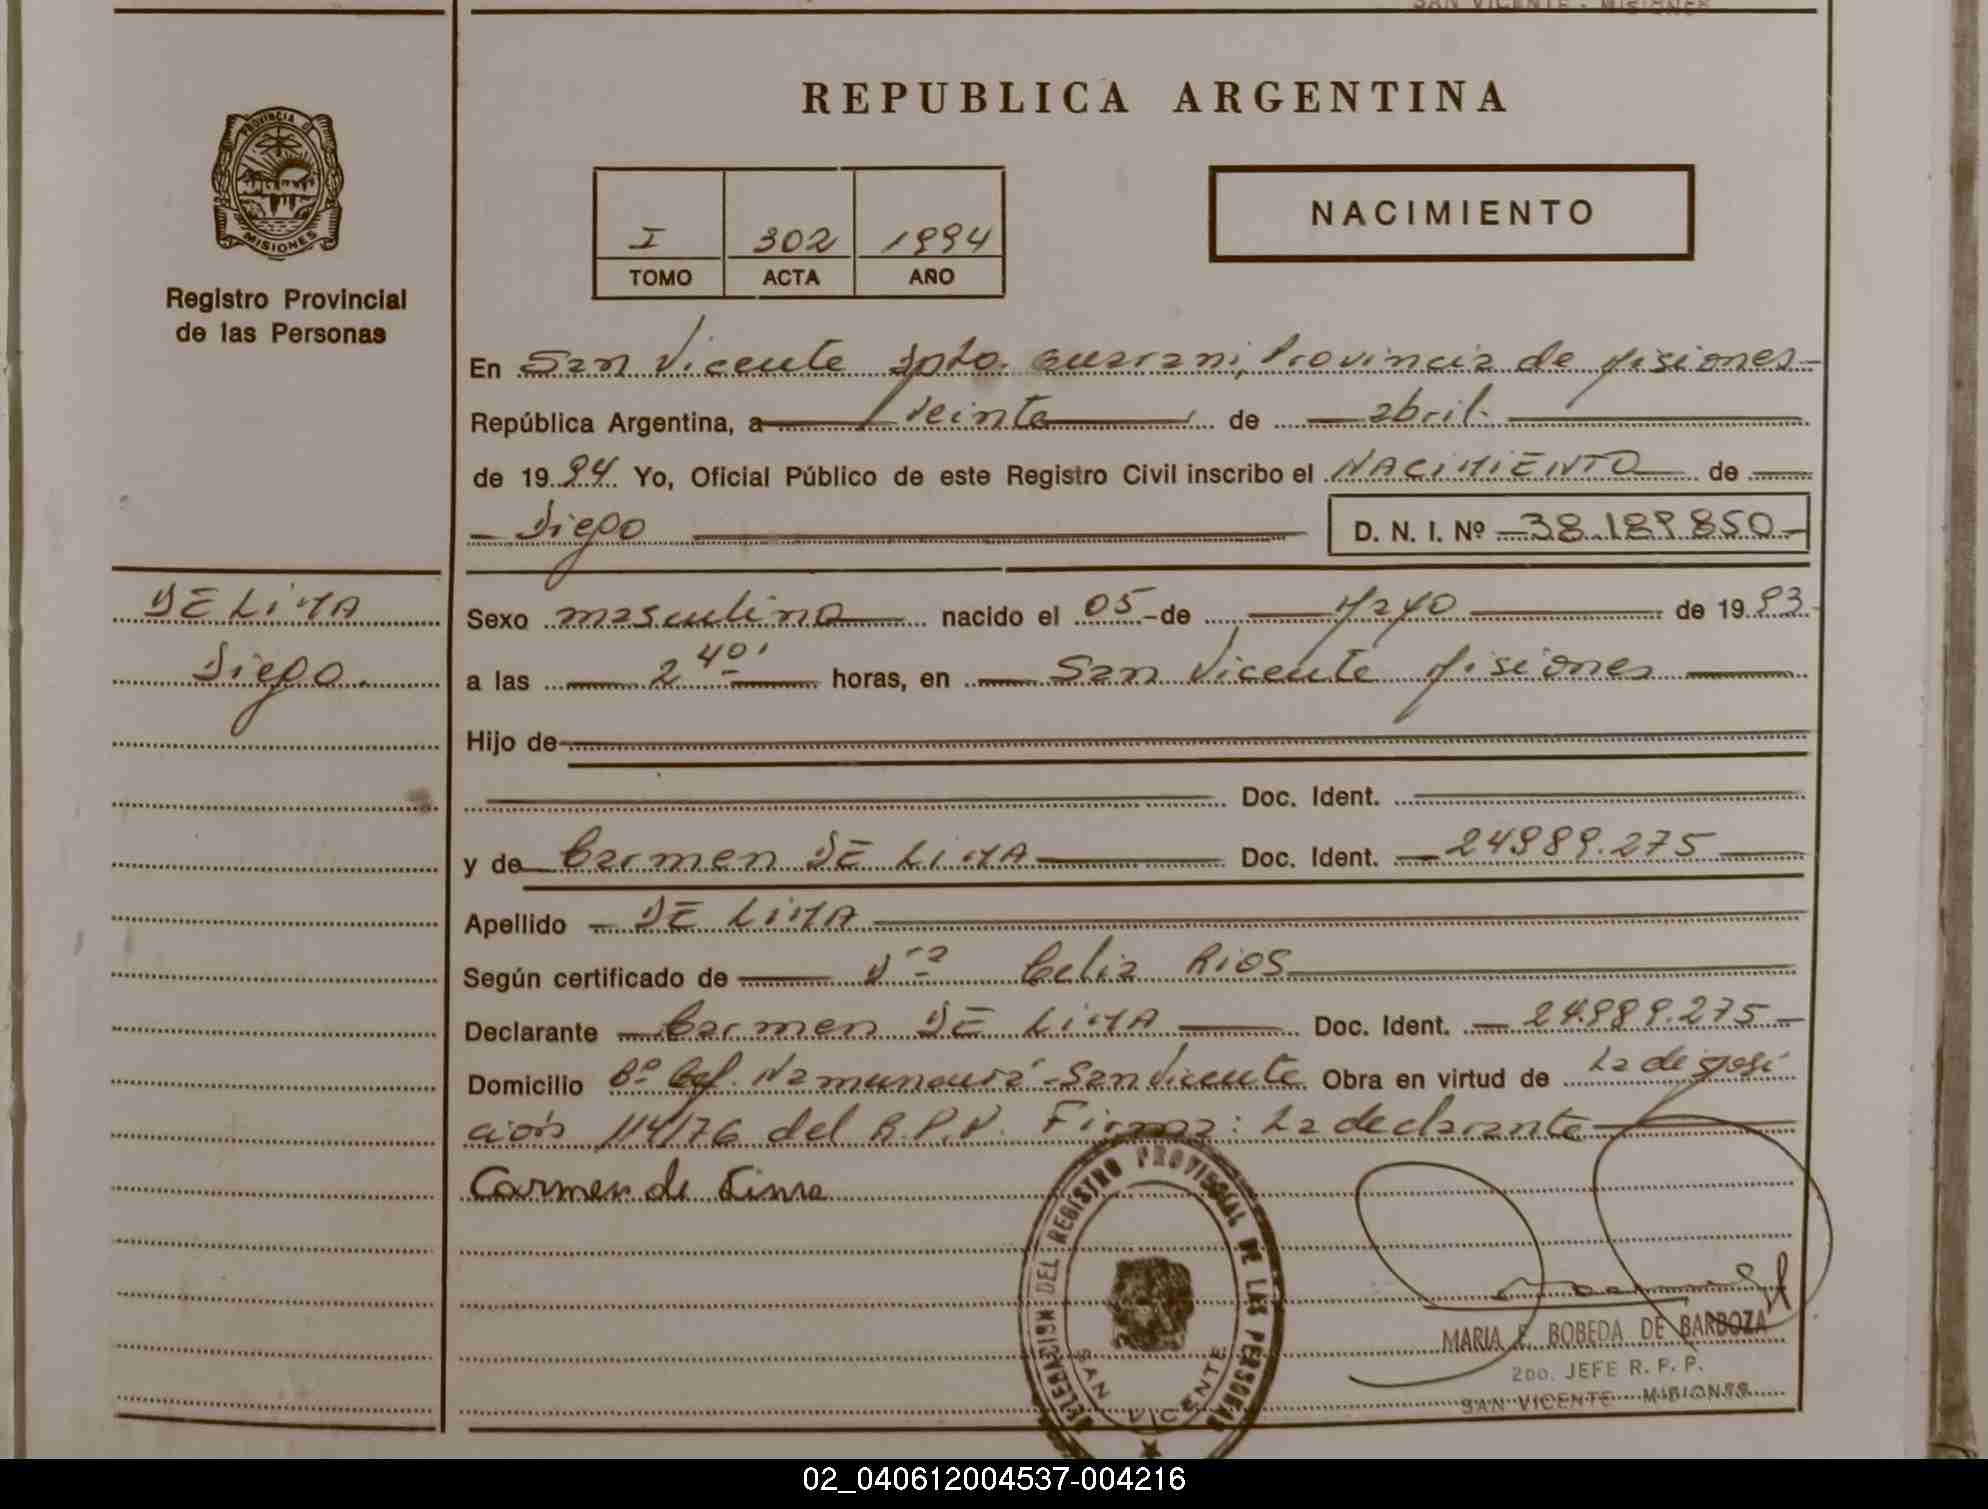 SAN VICENTE - MISIONES
REPUBLICA ARGENTINA
PROVINCIA DE
MISIONES
Registro Provincial
de las Personas
I 302 1994
TOMO ACTA AÑO
NACIMIENTO
En San Vicente Dpto. Guarani, Provincia de Misiones
República Argentina, a Veinte de abril.
de 1994. Yo, Oficial Público de este Registro Civil inscribo el NACIMIENTO de
Diego D. N. I. Nº 38.189.850-
DE LIMA
Diego.
Sexo masculino nacido el 05 de Mayo de 1993.
a las 2 40' horas, en San Vicente Misiones
Hijo de
Doc. Ident.
y de Carmen DE LIMA Doc. Ident. 24989.275
Apellido DE LIMA
Según certificado de Dra Celia RIOS
Declarante Carmen DE LIMA Doc. Ident. 24.989.275
Domicilio Bº Cef. Namuncurá - San Vicente Obra en virtud de La disposi
ción 114/76 del R.P.P. Firma: La declarante
Carmen de Lima
DELEGACION DEL REGISTRO PROVINCIAL DE LAS PERSONAS
SAN VICENTE
MARIA E. BOBEDA DE BARBOZA
2DO. JEFE R. P. P.
SAN VICENTE MISIONES
02_040612004537-004216